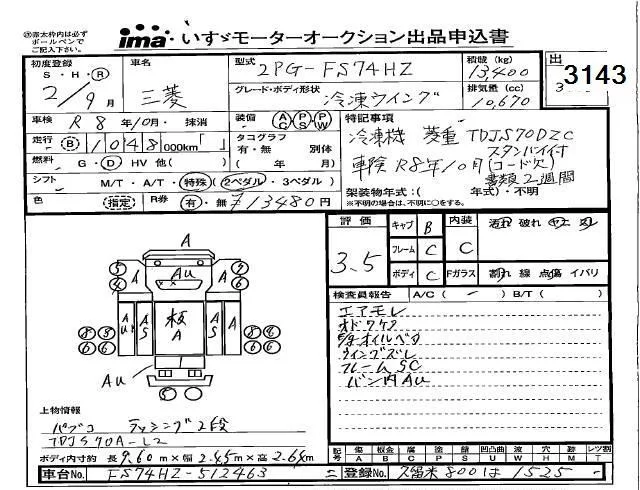 ※赤太枠内は必ず
ボールペンで
ご記入下さい。
ima いすゞモーターオークション出品申込書
初度登録
S・H・R
2/9月
車名
三菱
型式
2PG-FS74HZ
グレード・ボディ形状
冷凍ウイング
積載 (kg)
13,400
排気量 (cc)
10,670
出
3143
車検 R8年10月・抹消
装備 AC PS PW
走行 B 1048 000km「 」
タコグラフ
有・無 別体
( 年 月)
燃料 G・D HV 他( )
シフト M/T・A/T・特殊(2ペダル・3ペダル)
色 (指定) R券 有・無 ¥13480円
特記事項
冷凍機 菱重 TDJS70DZC
スタンバイ付
車検R8年10月(コード欠)
書類2週間
架装物年式:( 年式)・不明
※不明の場合は、不明に○をする。
評価
3.5
キャブ B
フレーム C
ボディ C
内装
C
Fガラス
汚れ 破れ ヤニ スレ
割れ 線 点傷 イバリ
検査員報告 A/C( - ) B/T( )
エアモレ
オドワケワ
ウイングズレ
フレームSC
バン内Au
A
Au
板
A
Au
上物情報
パブコ ラッシング2段
TDJS70A-L2
ボディ内寸約 長9.60m×幅2.45m×高2.65m
車台No. FS74HZ-512463
記号 傷 板金 腐 塗 錆 凹凸曲 波 穴 跡 レツ割
A B C P S U W H M T
登録No. 久留米800は1525